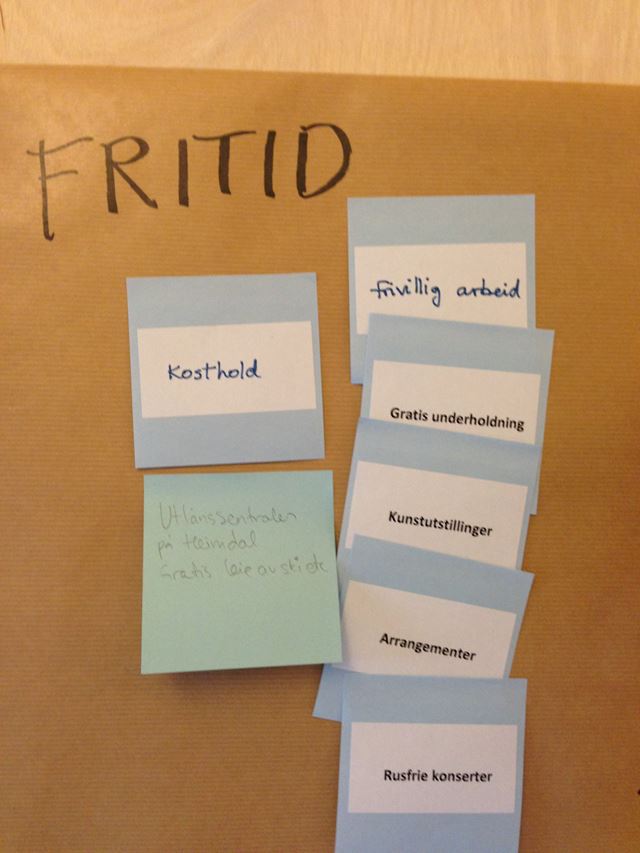 FRITID
Kosthold
Utlånssentralen
på Heimdal
Gratis leie av ski etc
frivillig arbeid
Gratis underholdning
Kunstutstillinger
Arrangementer
Rusfrie konserter